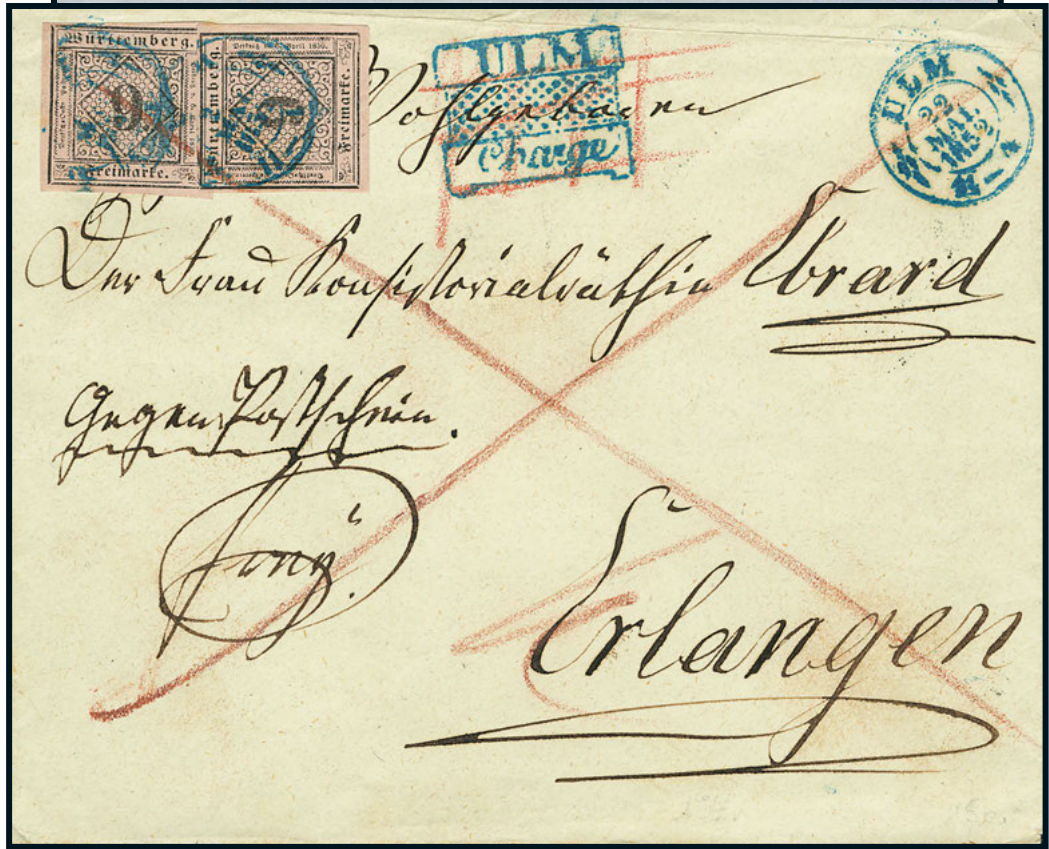 Württemberg.
9
Freimarke.
Württemberg.
9
Freimarke.
ULM
Chargé
ULM
22
MAI
1852
Wohlgeboren
Der Frau Konsistorialräthin Ebrard
Gegen Postschein.
franco.
Erlangen